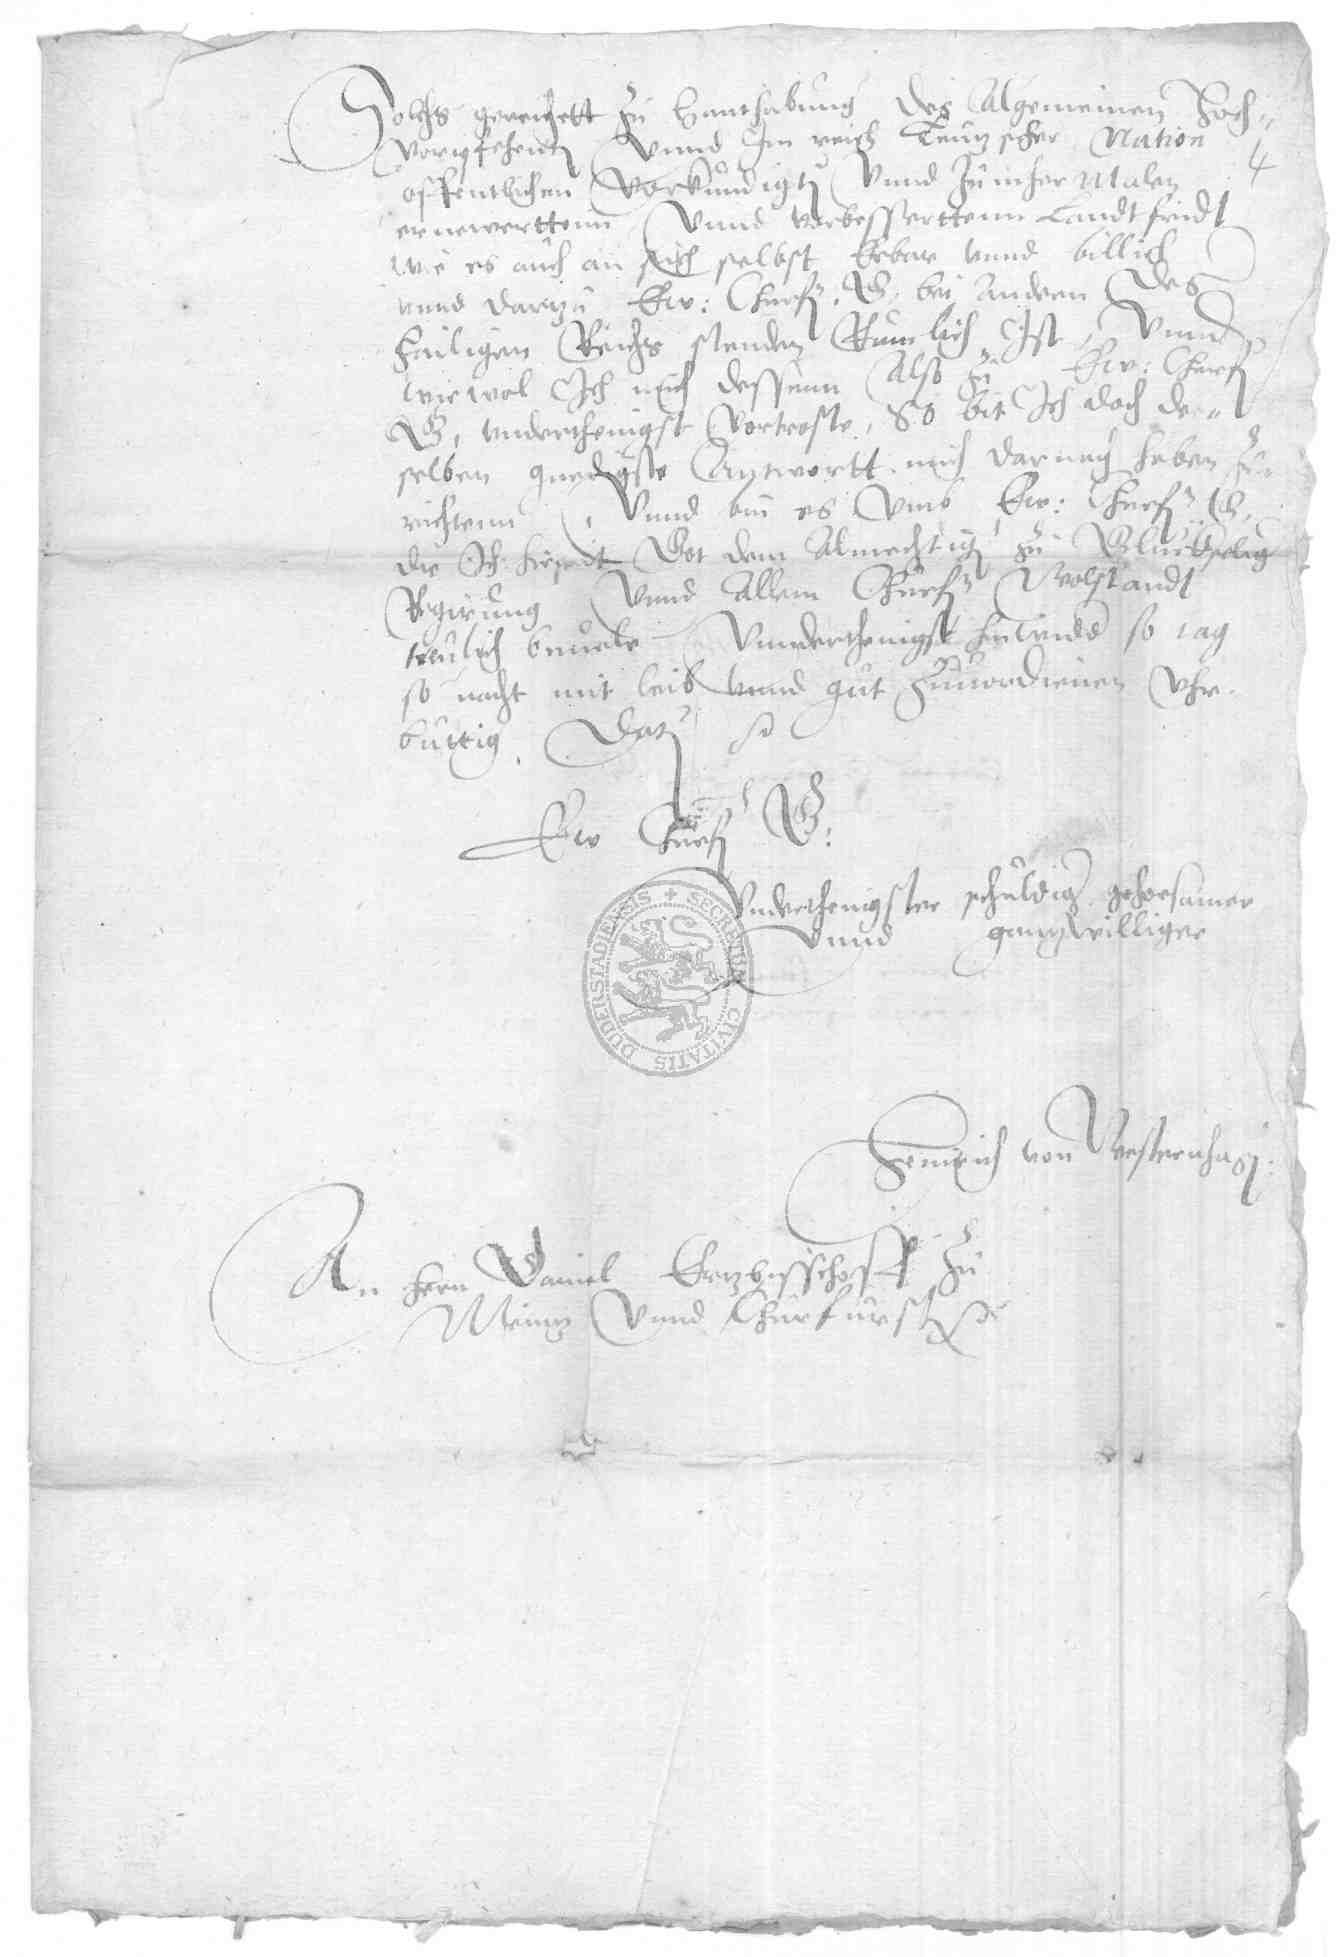 Solchs gereichett zu Hanthabung des Algemeinen Hoch-
vorpfehenn Vnnd Im reich Teutzscher Nation
4
offentlichen Vorkundigtt Vnnd zu mher Malen
ernewerttenn Vnnd vorbesserttenn Landtfridt
wie es auch an sich selbst Erbar vnnd billich
vnnd dartzu Ew: Churf. G. bei Andern des
hailigen Reichs stenden Rumlich Ist, Vnnd
wiewol Ich mich dessenn Also zu Ew: Churf
G, vnderthenigst Vortroste, So bit Ich doch der-
selben gnedigste Antwortt mich darnach haben zu
richtenn, Vnnd bin es Vmb Ew: Churf G,
die Ich hirmit Got dem Almechtigen zu Gluckselig
Regirung Vnnd Allem Churf Wolstandt
treulich beuele Vnnderthenigst so tag
so nacht mit leib vnnd gut zuuordienen Vhr-
buttig, Dat
Ew Churf G:
Vnderthenigster schuldig gehorsamer
Vnnd gantzwilliger
SECRETUM CIVITATIS DUDERSTADIENSIS
Heinrich von Westernhagen
An hern Daniel Ertzbisschoff zu
Meintz Vnnd Churfurst